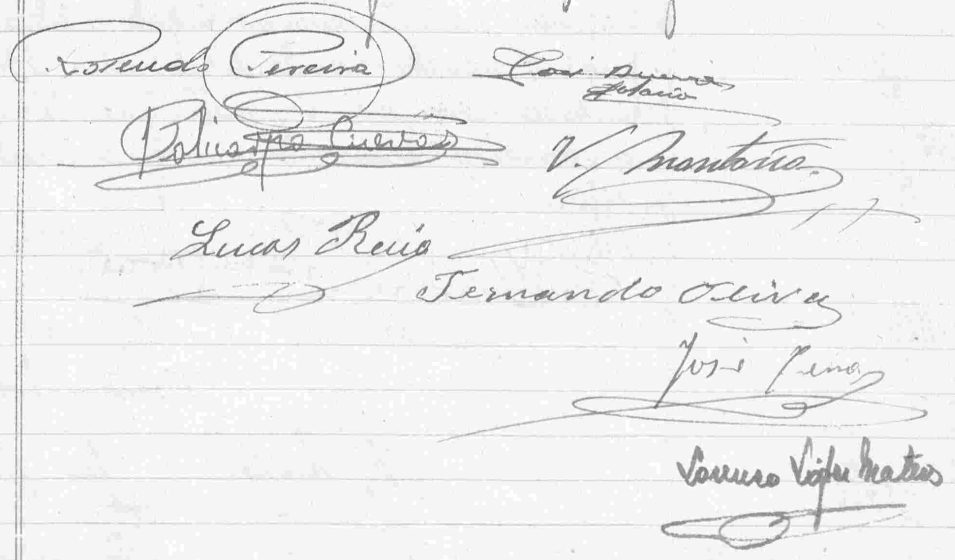 Rosendo Pereira
José
Policarpo Cuevas
V. Montaño.
Lucas Recio
Fernando Oliva
José Pena
Lorenzo López Mateos